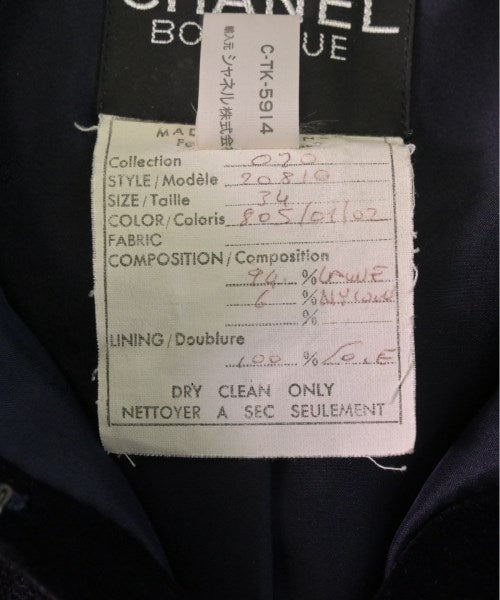 CHANEL
BOUTIQUE
C-TK-5914
輸入元 シャネル株式会
MAD
Collection 020
STYLE/Modèle 20810
SIZE/Taille 34
COLOR/Coloris 805/01/02
FABRIC
COMPOSITION/Composition
94 % LAINE
6 % NYLON
%
LINING/Doublure
100 % SOIE
DRY CLEAN ONLY
NETTOYER A SEC SEULEMENT